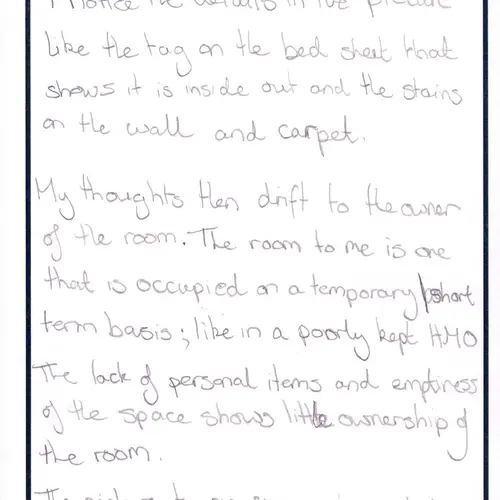 I notice the details in the picture
like the tag on the bed sheet that
shows it is inside out and the stains
on the wall and carpet.
My thoughts then drift to the owner
of the room. The room to me is one
that is occupied on a temporary/short
term basis; like in a poorly kept HMO
The lack of personal items and emptiness
of the space shows little ownership of
the room.